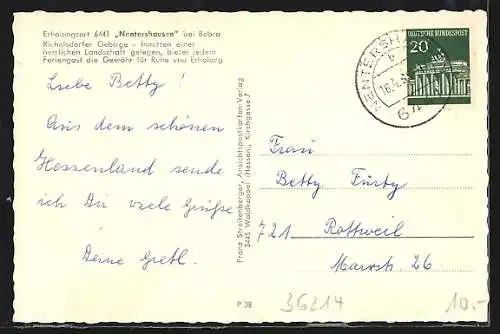 Erholungsort 6441 „Nentershausen" bei Bebra
Richelsdorfer Gebirge - Inmitten einer
herrlichen Landschaft gelegen, bietet jedem
Feriengast die Gewähr für Ruhe und Erholung
Liebe Betty!
Aus dem schönen
Hessenland sende
ich Dir viele Grüße
Deine Gretl.
Franz Streitenberger, Ansichtspostkarten-Verlag
3445 Waldkappel (Hessen), Kirchgasse 7
NENTERSH
DEUTSCHE BUNDESPOST
20
Frau
Betty Furty
721 Rottweil
26
P 38
36214
10.-